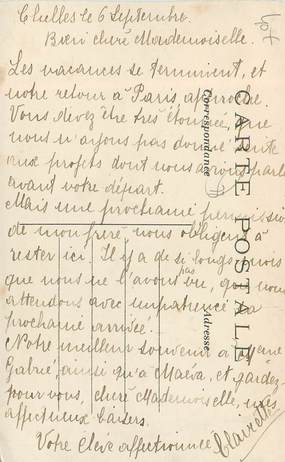 Chelles le 6 Septembre.
407
Bien chère Mademoiselle.
Les vacances se terminent, et
notre retour à Paris, approche.
Vous devez être très étonnée, que
nous n'ayons pas donné suite
aux projets dont nous avons parlé
avant votre départ.
Mais une prochaine permission
de mon frère, nous obligent à
rester ici. Il y a de si longs mois
que nous ne l'avons pas vu, que nous
attendons avec impatience sa
prochaine arrivée.
Notre meilleur souvenir à Mme
Gabrié, ainsi qu'à Maëva, et gardez
pour vous, chère Mademoiselle, mes
affectueux baisers.
Votre élève affectionnée
Clairette
CARTE POSTALE
Correspondance
Adresse